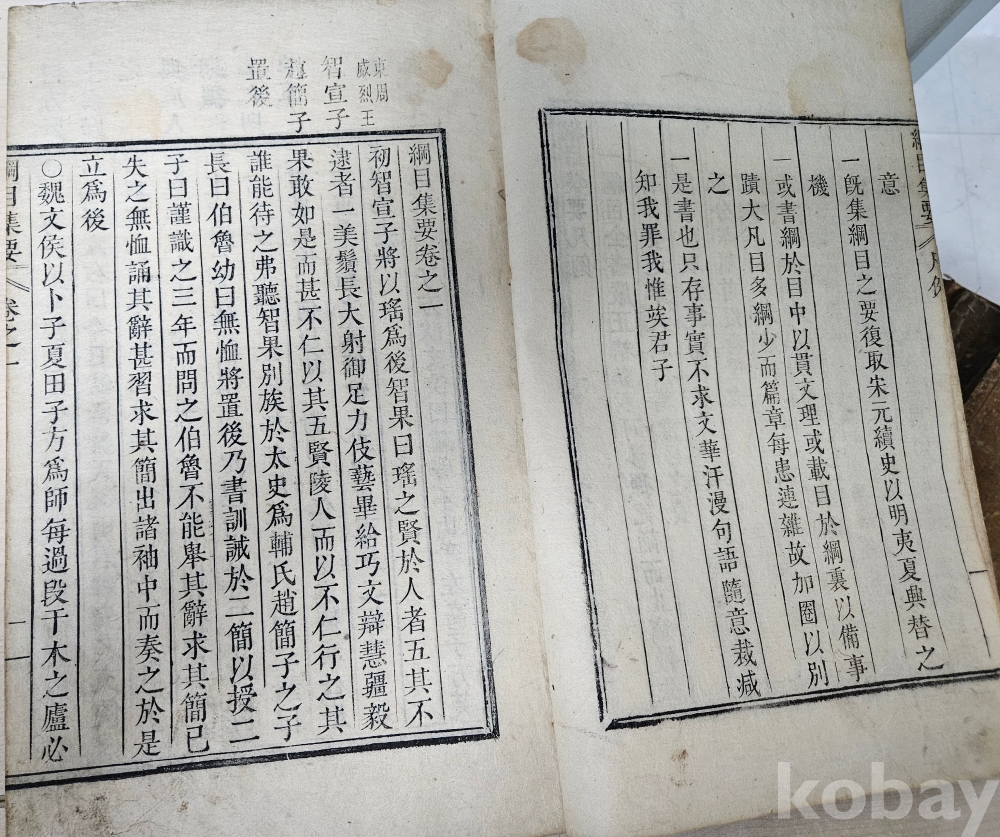 綱目集要 凡例
意
一旣集綱目之要復取宋元續史以明夷夏興替之
機
一或書綱於目中以貫文理或載目於綱裏以備事
蹟大凡目多綱少而篇章每患連雜故加圈以別
之
一是書也只存事實不求文華汗漫句語隨意裁减
知我罪我惟竢君子
東周
威烈王
智宣子
趙簡子
置後
綱目集要卷之一
初智宣子將以瑤爲後智果曰瑤之賢於人者五其不
逮者一美鬚長大射御足力伎藝畢給巧文辯慧彊毅
果敢如是而甚不仁以其五賢陵人而以不仁行之其
誰能待之弗聽智果別族於太史爲輔氏趙簡子之子
長曰伯魯幼曰無恤將置後乃書訓誡於二簡以授二
子曰謹識之三年而問之伯魯不能舉其辭求其簡已
失之無恤誦其辭甚習求其簡出諸袖中而奏之於是
立爲後
○魏文侯以卜子夏田子方爲師每過段干木之廬必
綱目集要 卷之一
一
kobay